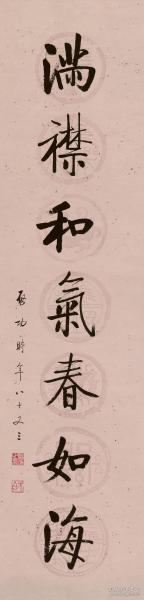 满襟和氣春如海
啓功時年八十又三